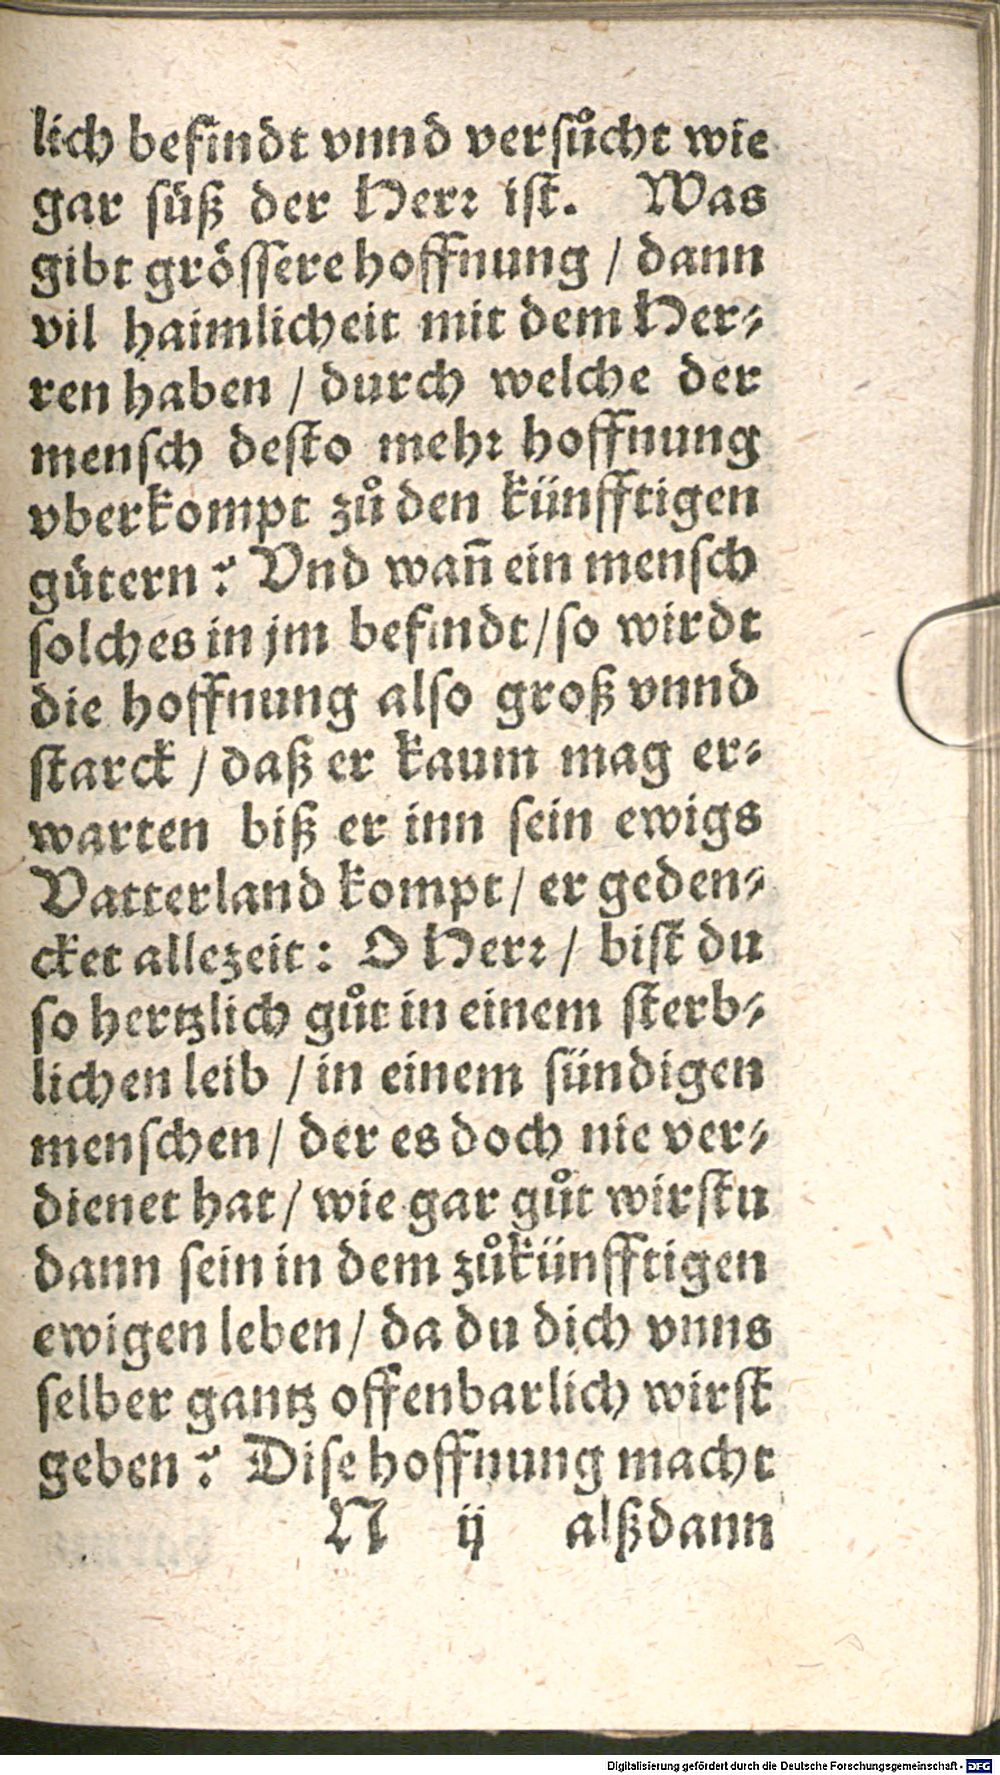 lich befindt vnnd versůcht wie
gar süß der Herr ist. Was
gibt grössere hoffnung / dann
vil haimlicheit mit dem Her⸗
ren haben / durch welche der
mensch desto mehr hoffnung
vberkompt zů den künfftigen
gütern? Vnd wañ ein mensch
solches in jm befindt/so wirdt
die hoffnung also groß vnnd
starck / daß er kaum mag er⸗
warten biß er inn sein ewigs
Vatterland kompt/ er geden⸗
cket allezeit: O Herr / bist du
so hertzlich gůt in einem sterb⸗
lichen leib / in einem sündigen
menschen/ der es doch nie ver⸗
dienet hat/ wie gar gůt wirstu
dann sein in dem zůkünfftigen
ewigen leben/ da du dich vnns
selber gantz offenbarlich wirst
geben? Dise hoffnung macht
N ij alßdann
Digitalisierung gefördert durch die Deutsche Forschungsgemeinschaft - DFG